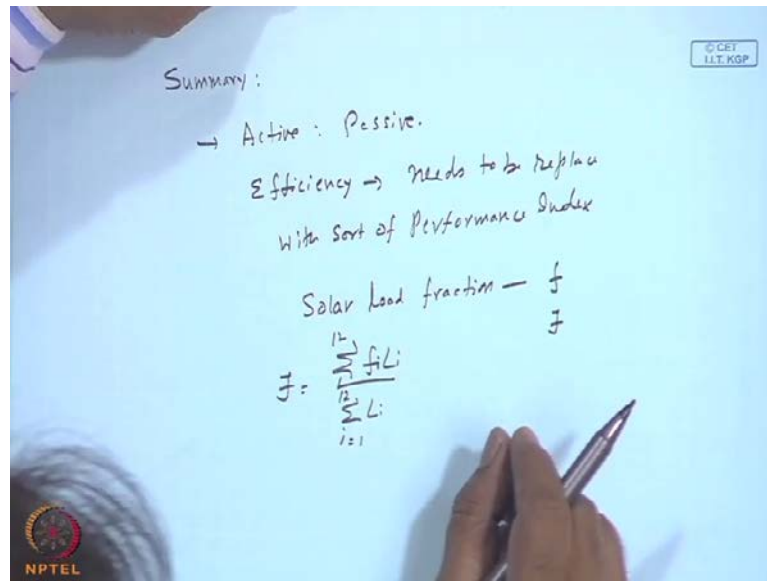 © CET
I.I.T. KGP
Summary :
→ Active : Passive.
Efficiency → needs to be replace
with sort of Performance Index
Solar Load fraction — f
F
F = 
12
∑ fiLi
12
∑ Li
i=1
NPTEL